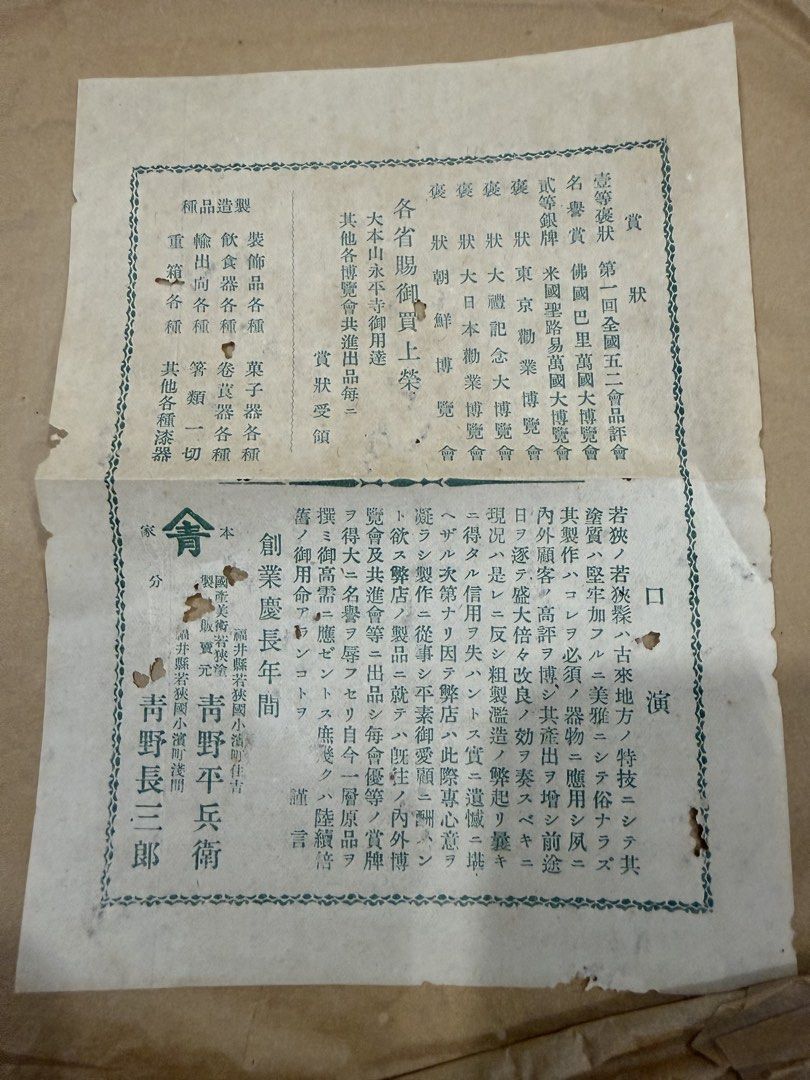 賞狀
壹等褒狀 第一回全國五二會品評會
名譽賞 佛國巴里萬國大博覽會
貳等銀牌 米國聖路易萬國大博覽會
褒狀 東京勸業博覽會
褒狀 大禮記念大博覽會
褒狀 大日本勸業博覽會
褒狀 朝鮮博覽會
各省賜御買上榮
大本山永平寺御用達
其他各博覽會共進出品每ニ
賞狀受領
製造品種
裝飾品各種 菓子器各種
飲食器各種 卷莨器各種
輸出向各種 箸類一切
重箱各種 其他各種漆器
口演
若狹ノ若狹髹ハ古來地方ノ特技ニシテ其
塗質ハ堅牢加フルニ美雅ニシテ俗ナラズ
其製作ハコレヲ必須ノ器物ニ應用シ夙ニ
內外顧客ノ高評ヲ博シ其產出ヲ增シ前途
日ヲ逐テ盛大倍々改良ノ効ヲ奏スベキニ
現况ハ是レニ反シ粗製濫造ノ弊起リ曩キ
ニ得タル信用ヲ失ハントス實ニ遺憾ニ堪
ヘザル次第ナリ因テ弊店ハ此際專心意ヲ
凝ラシ製作ニ從事シ平素御愛顧ニ酬ハン
ト欲ス弊店ノ製品ニ就テハ旣往ノ內外博
覽會及共進會等ニ出品シ每會優等ノ賞牌
ヲ得大ニ名譽ヲ辱フセリ自今一層原品ヲ
撰ミ御高需ニ應ゼントス庶幾クハ陸續倍
舊ノ御用命アランコトヲ 謹言
創業慶長年間
本家
青
國產美術若狹塗
製 販賣元
福井縣若狹國小濱町住吉
靑野平兵衛
分
福井縣若狹國小濱町淺間
靑野長三郎